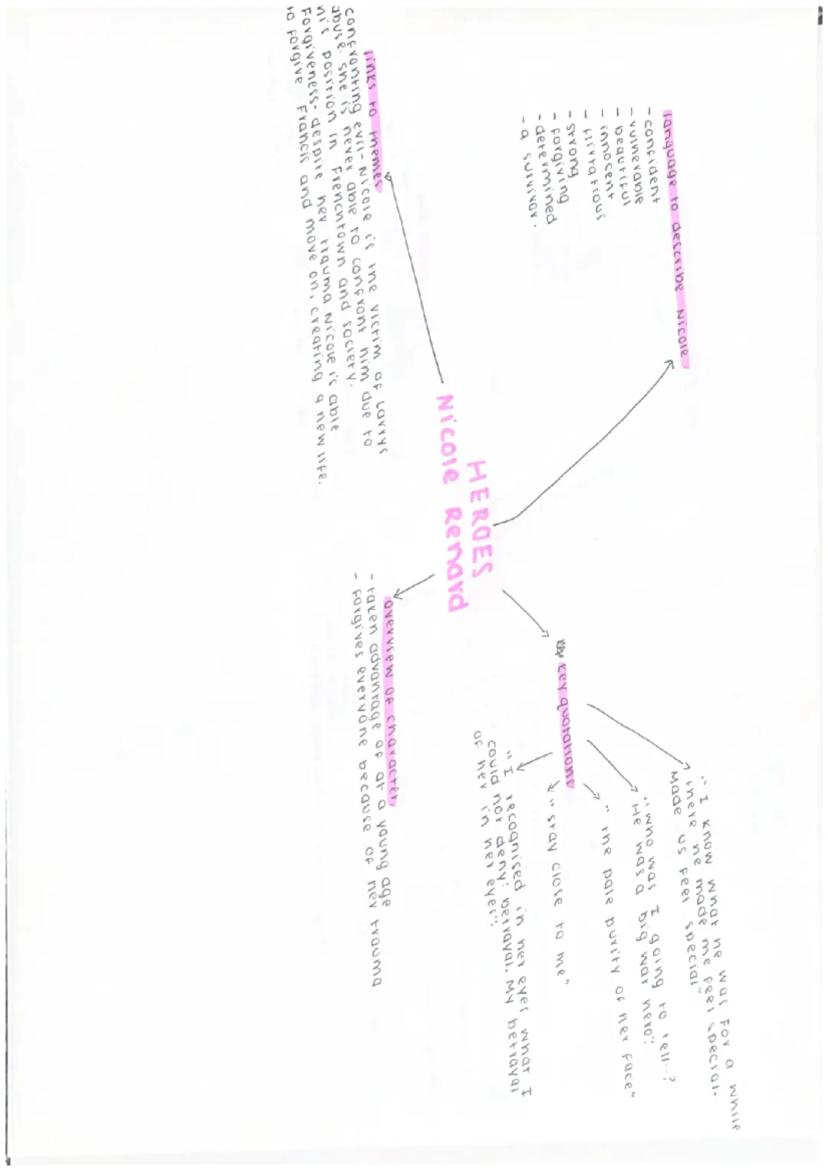 HEROES
Nicole Renard
language to describe Nicole
- confident
- vulnerable
- beautiful
- innocent
- flirtatious
- strong
- forgiving
- determined
- a survivor.
key quotations
"I know what he was for a while
there he made me feel special.
Made us feel special"
"who was I going to tell--?
He was a big war hero".
"the pale purity of her face"
"stay close to me"
"I recognised in her eyes what I
could not deny: betrayal. My betrayal
of her in her eyes".
overview of character
- taken advantage of at a young age
- forgives everyone because of her trauma
links to themes
confronting evil- Nicole is the victim of larrys
abuse. she is never able to confront him due to
his position in frenchtown and society.
Forgiveness- despite her trauma Nicole is able
to forgive francis and move on, creating a new life.